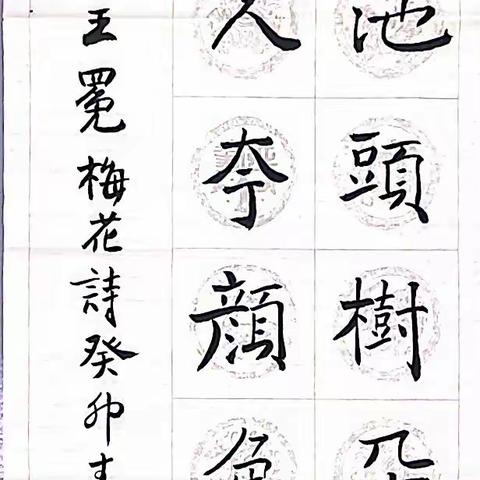 池頭樹朵
人夸顏色
王冕梅花詩癸卯